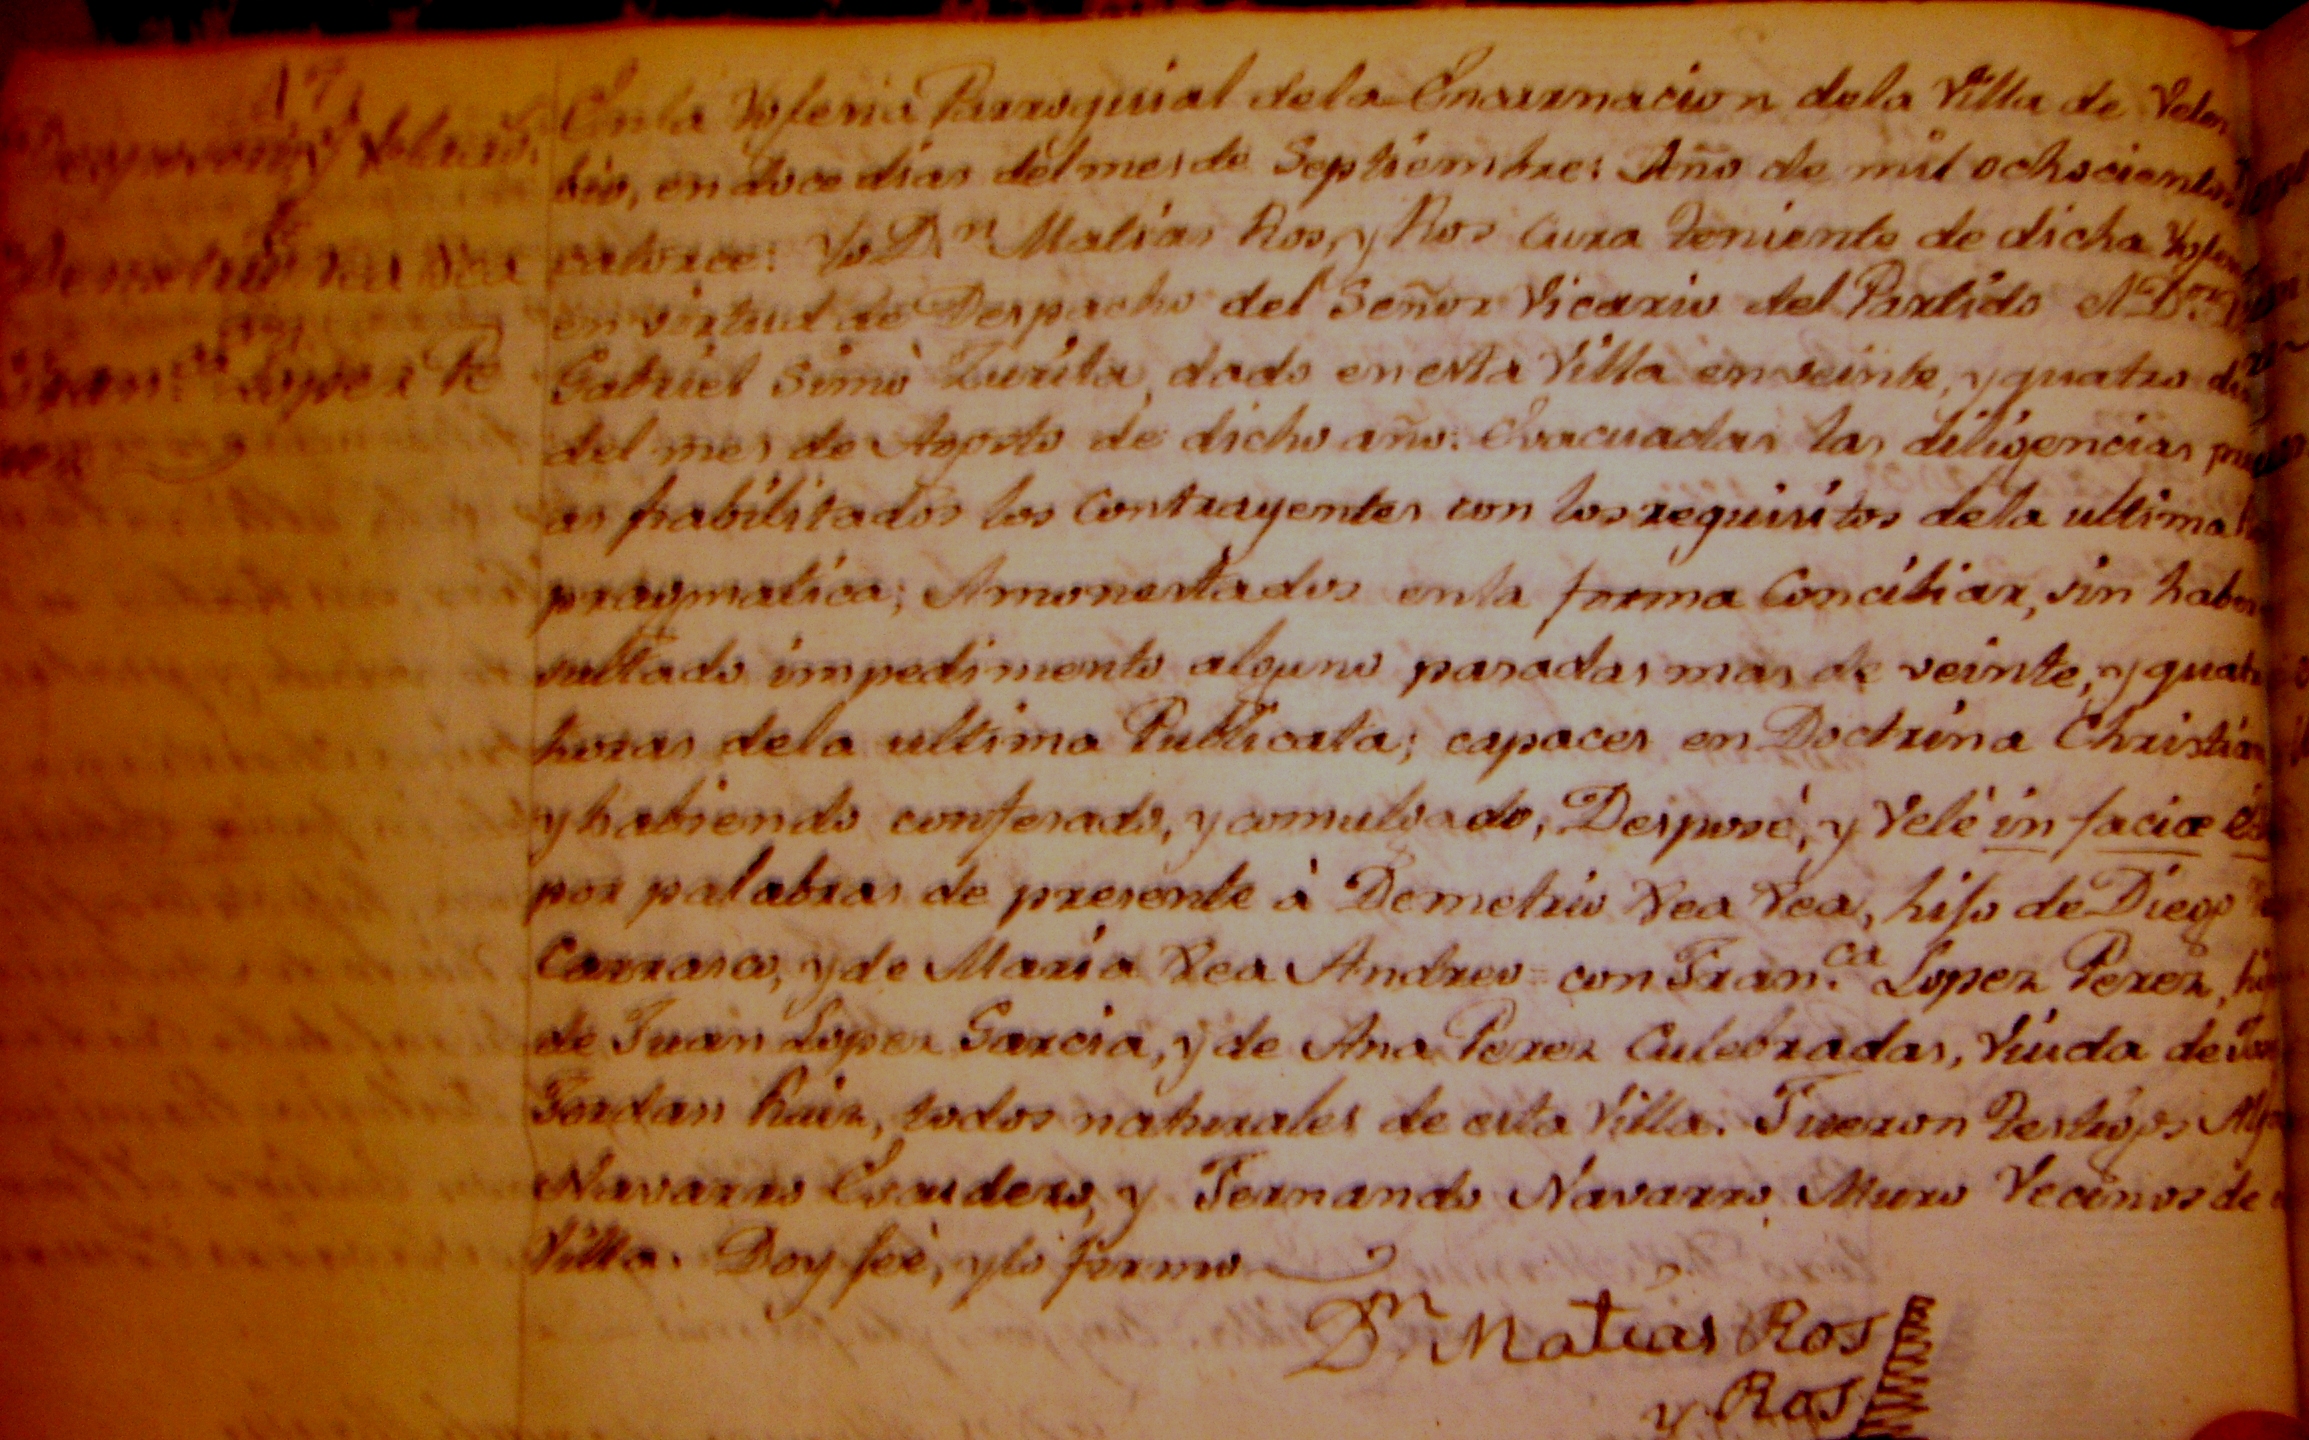 17
Desposorio, y Velacio.
de
Demetrio Vea Vea
con
Fran.ca Lopez Pe
rez
En la Yglesia Parroquial de la Encarnacion de la Villa de Velez
bio, en doce dias del mes de Septiembre: Año de mil ochocientos
catorce: Yo Dn Matias Ros, y Ros Cura Teniente de dicha Ygles
en virtud de Despacho del Señor Vicario del Partido
Gabriel Simò Zurita, dado en esta Villa en veinte, y quatro di
del mes de Agosto de dicho año: Evacuadas las diligencias prev
as habilitados los Contrayentes con los requisitos de la ultima
pragmatica; Amonestados en la forma Conciliar, sin haber
sultado impedimento alguno pasadas mas de veinte, y quat
horas de la ultima Publicata; capaces en Doctrina Christian
y habiendo confesado, y comulgado, Desposé, y Velé in facie
por palabras de presente à Demetrio Vea Vea, hijo de Diego
Carrasco, y de Maria Vea Andreo = con Fran.ca Lopez Perez, hij
de Juan Lopez Garcia, y de Ana Perez Culebradas, Viuda de
Jordan Ruiz, todos naturales de esta Villa. Fueron Testigos
Navarro Escudero, y Fernando Navarro Muro Vecinos de
Villa. Doy feé, y lo firmo
Dn Matias Ros
y Ros